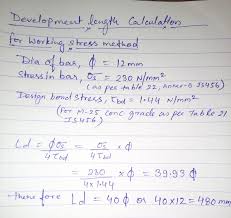 Development length Calculation
for Working stress method
Dia of bar, ϕ = 12mm
Stress in bar, σs = 230 N/mm²
(as per table 22, Annex-B IS456)
Design bond stress, τbd = 1.44 N/mm²
(for M-25 Conc grade as per Table 21
IS456)
Ld = ϕσs / 4τbd = σs / 4τbd × ϕ
= 230 / 4×1.44 × ϕ = 39.93 ϕ
therefore Ld = 40ϕ or 40×12 = 480 mm